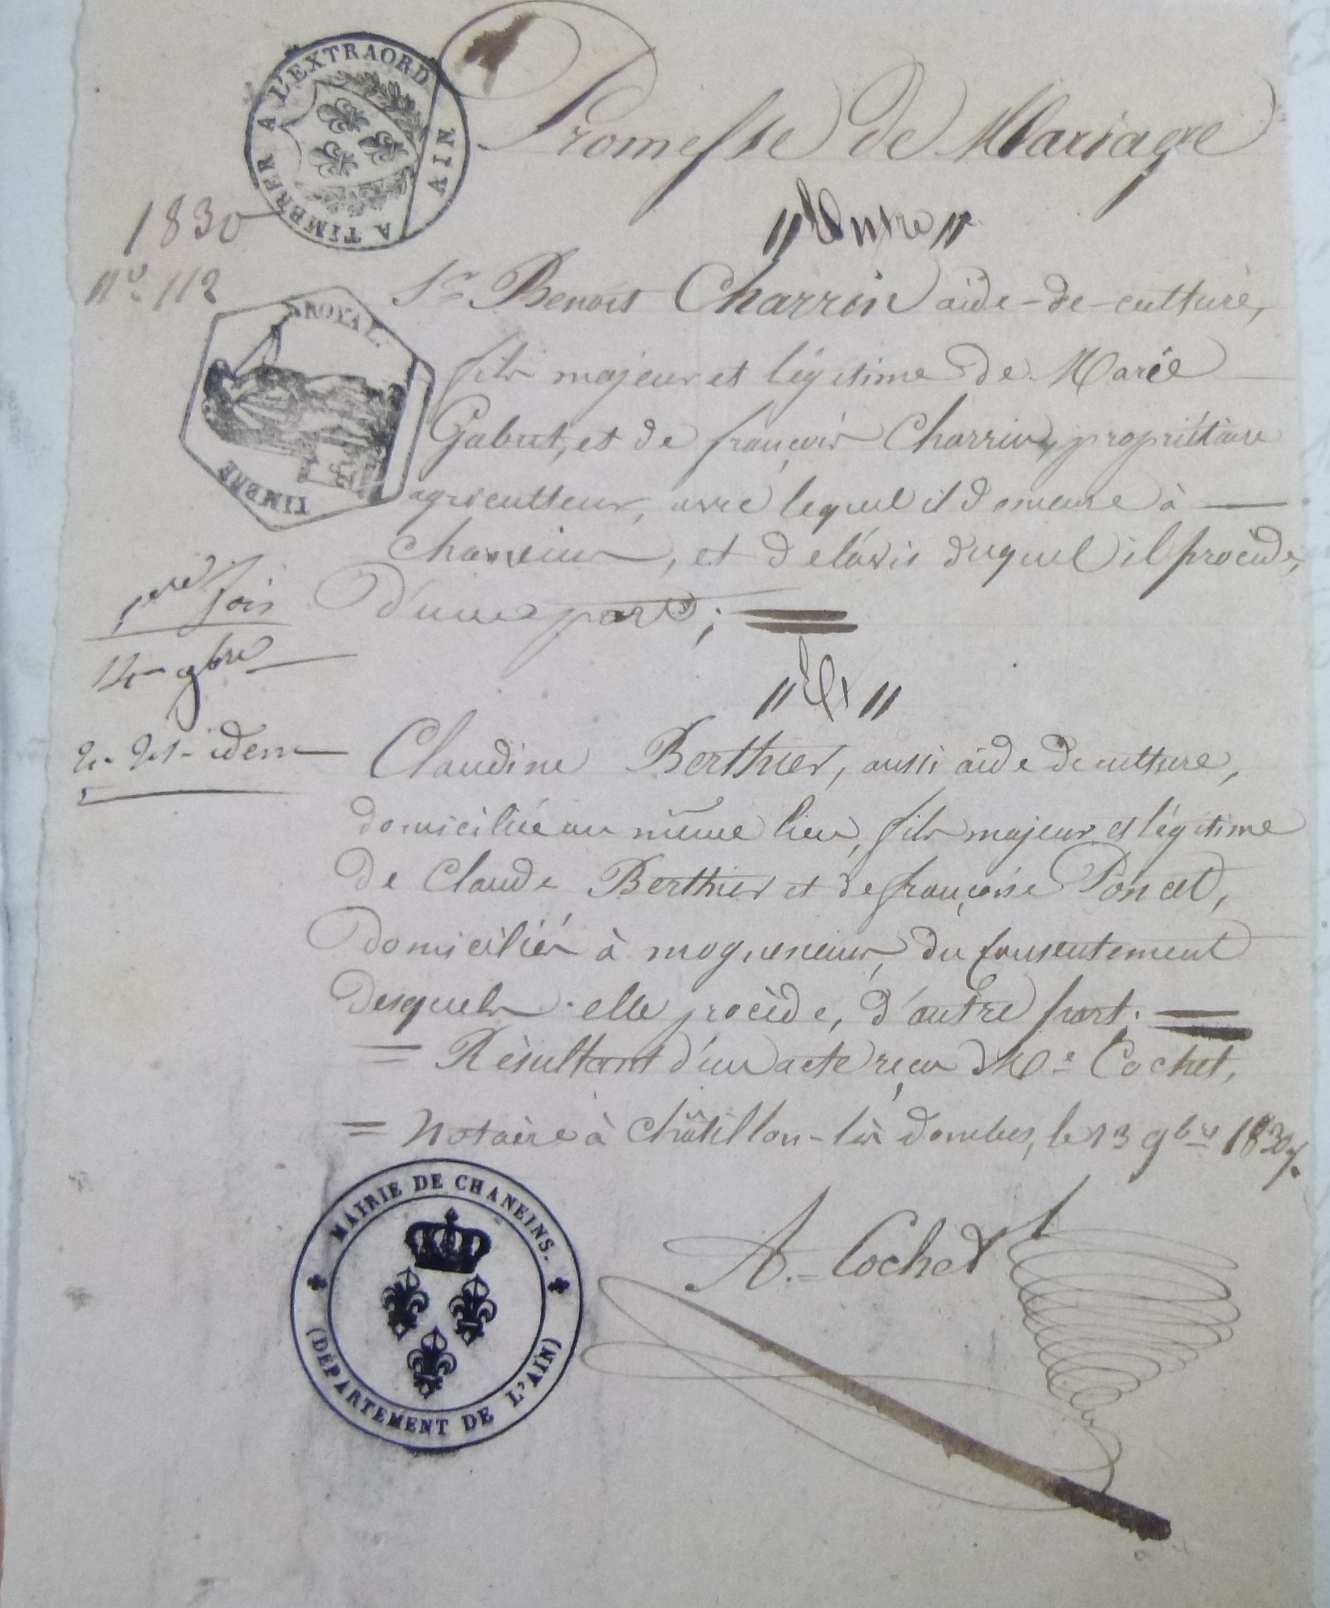 A TIMBRER A L'EXTRAORD
AIN
Promesse de Mariage
1830
n.º 112
"Entre"
Sr. Benoit Charrin aide-de-culture,
ROYAL.
TIMBRE
fils majeur et légitime de Marie
Gabut, et de françois Charrin, propriétaire
agriculteur, avec lequel il demeure à
chaneins, et de l'avis duquel il procède,
D'une part;
1ere fois
14 9bre
2e 21 idem
"Et"
Claudine Berthier, aussi aide de culture,
domiciliée au même lieu, fils majeur et légitime
de Claude Berthier et de françoise Poncet,
Domiciliés à mogneneins, du consentement
Desquels elle procède, d'autre part.
= Résultant d'un acte reçu Me Cochet,
= Notaire à Châtillon-les dombes, le 13 9bre 1830.
A. Cochet
MAIRIE DE CHANEINS.
(DÉPARTEMENT DE L'AIN)